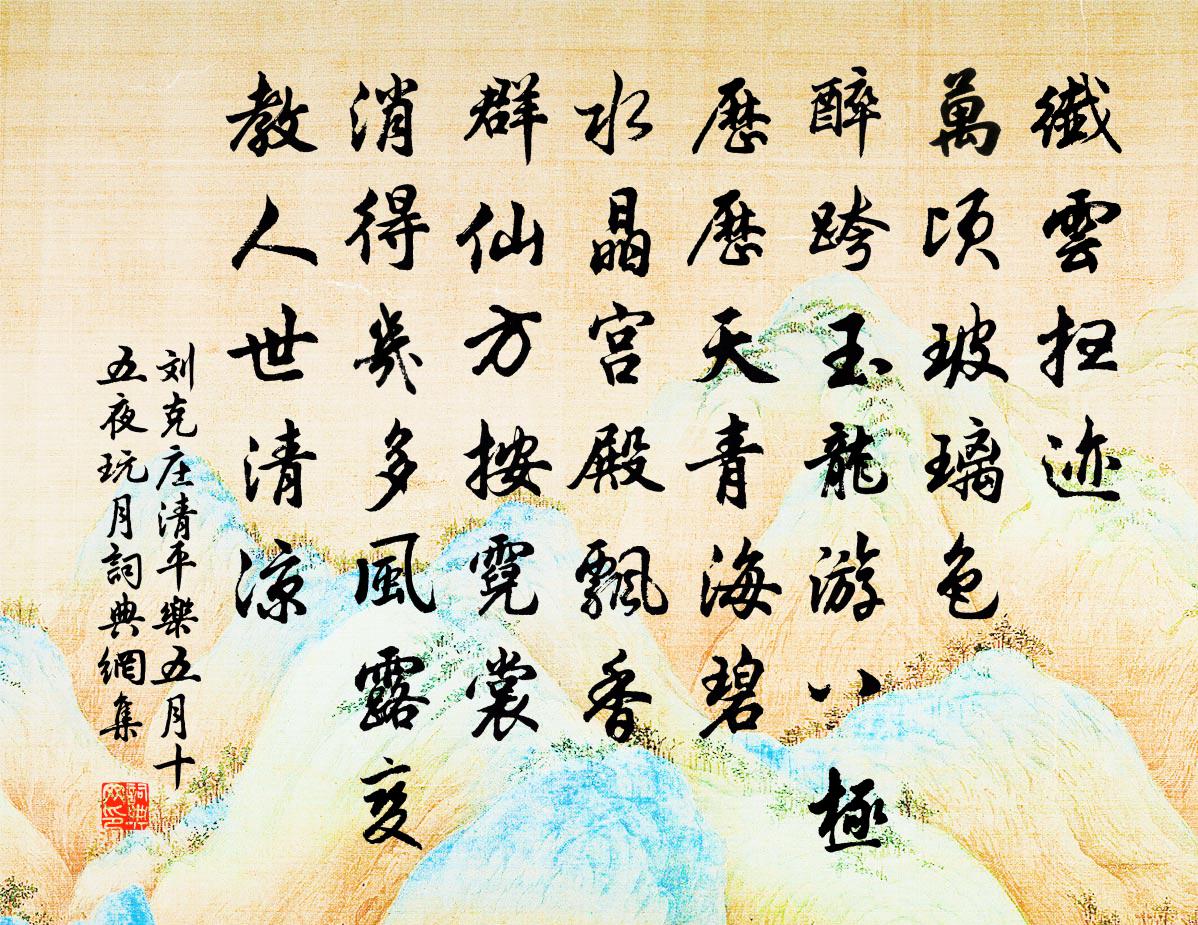 纖雲扫迹
萬顷玻璃色
醉跨玉龍游八極
歷歷天青海碧
水晶宫殿飄香
群仙方按霓裳
消得幾多風露变
教人世清涼
刘克庄清平樂五月十
五夜玩月詞典網集